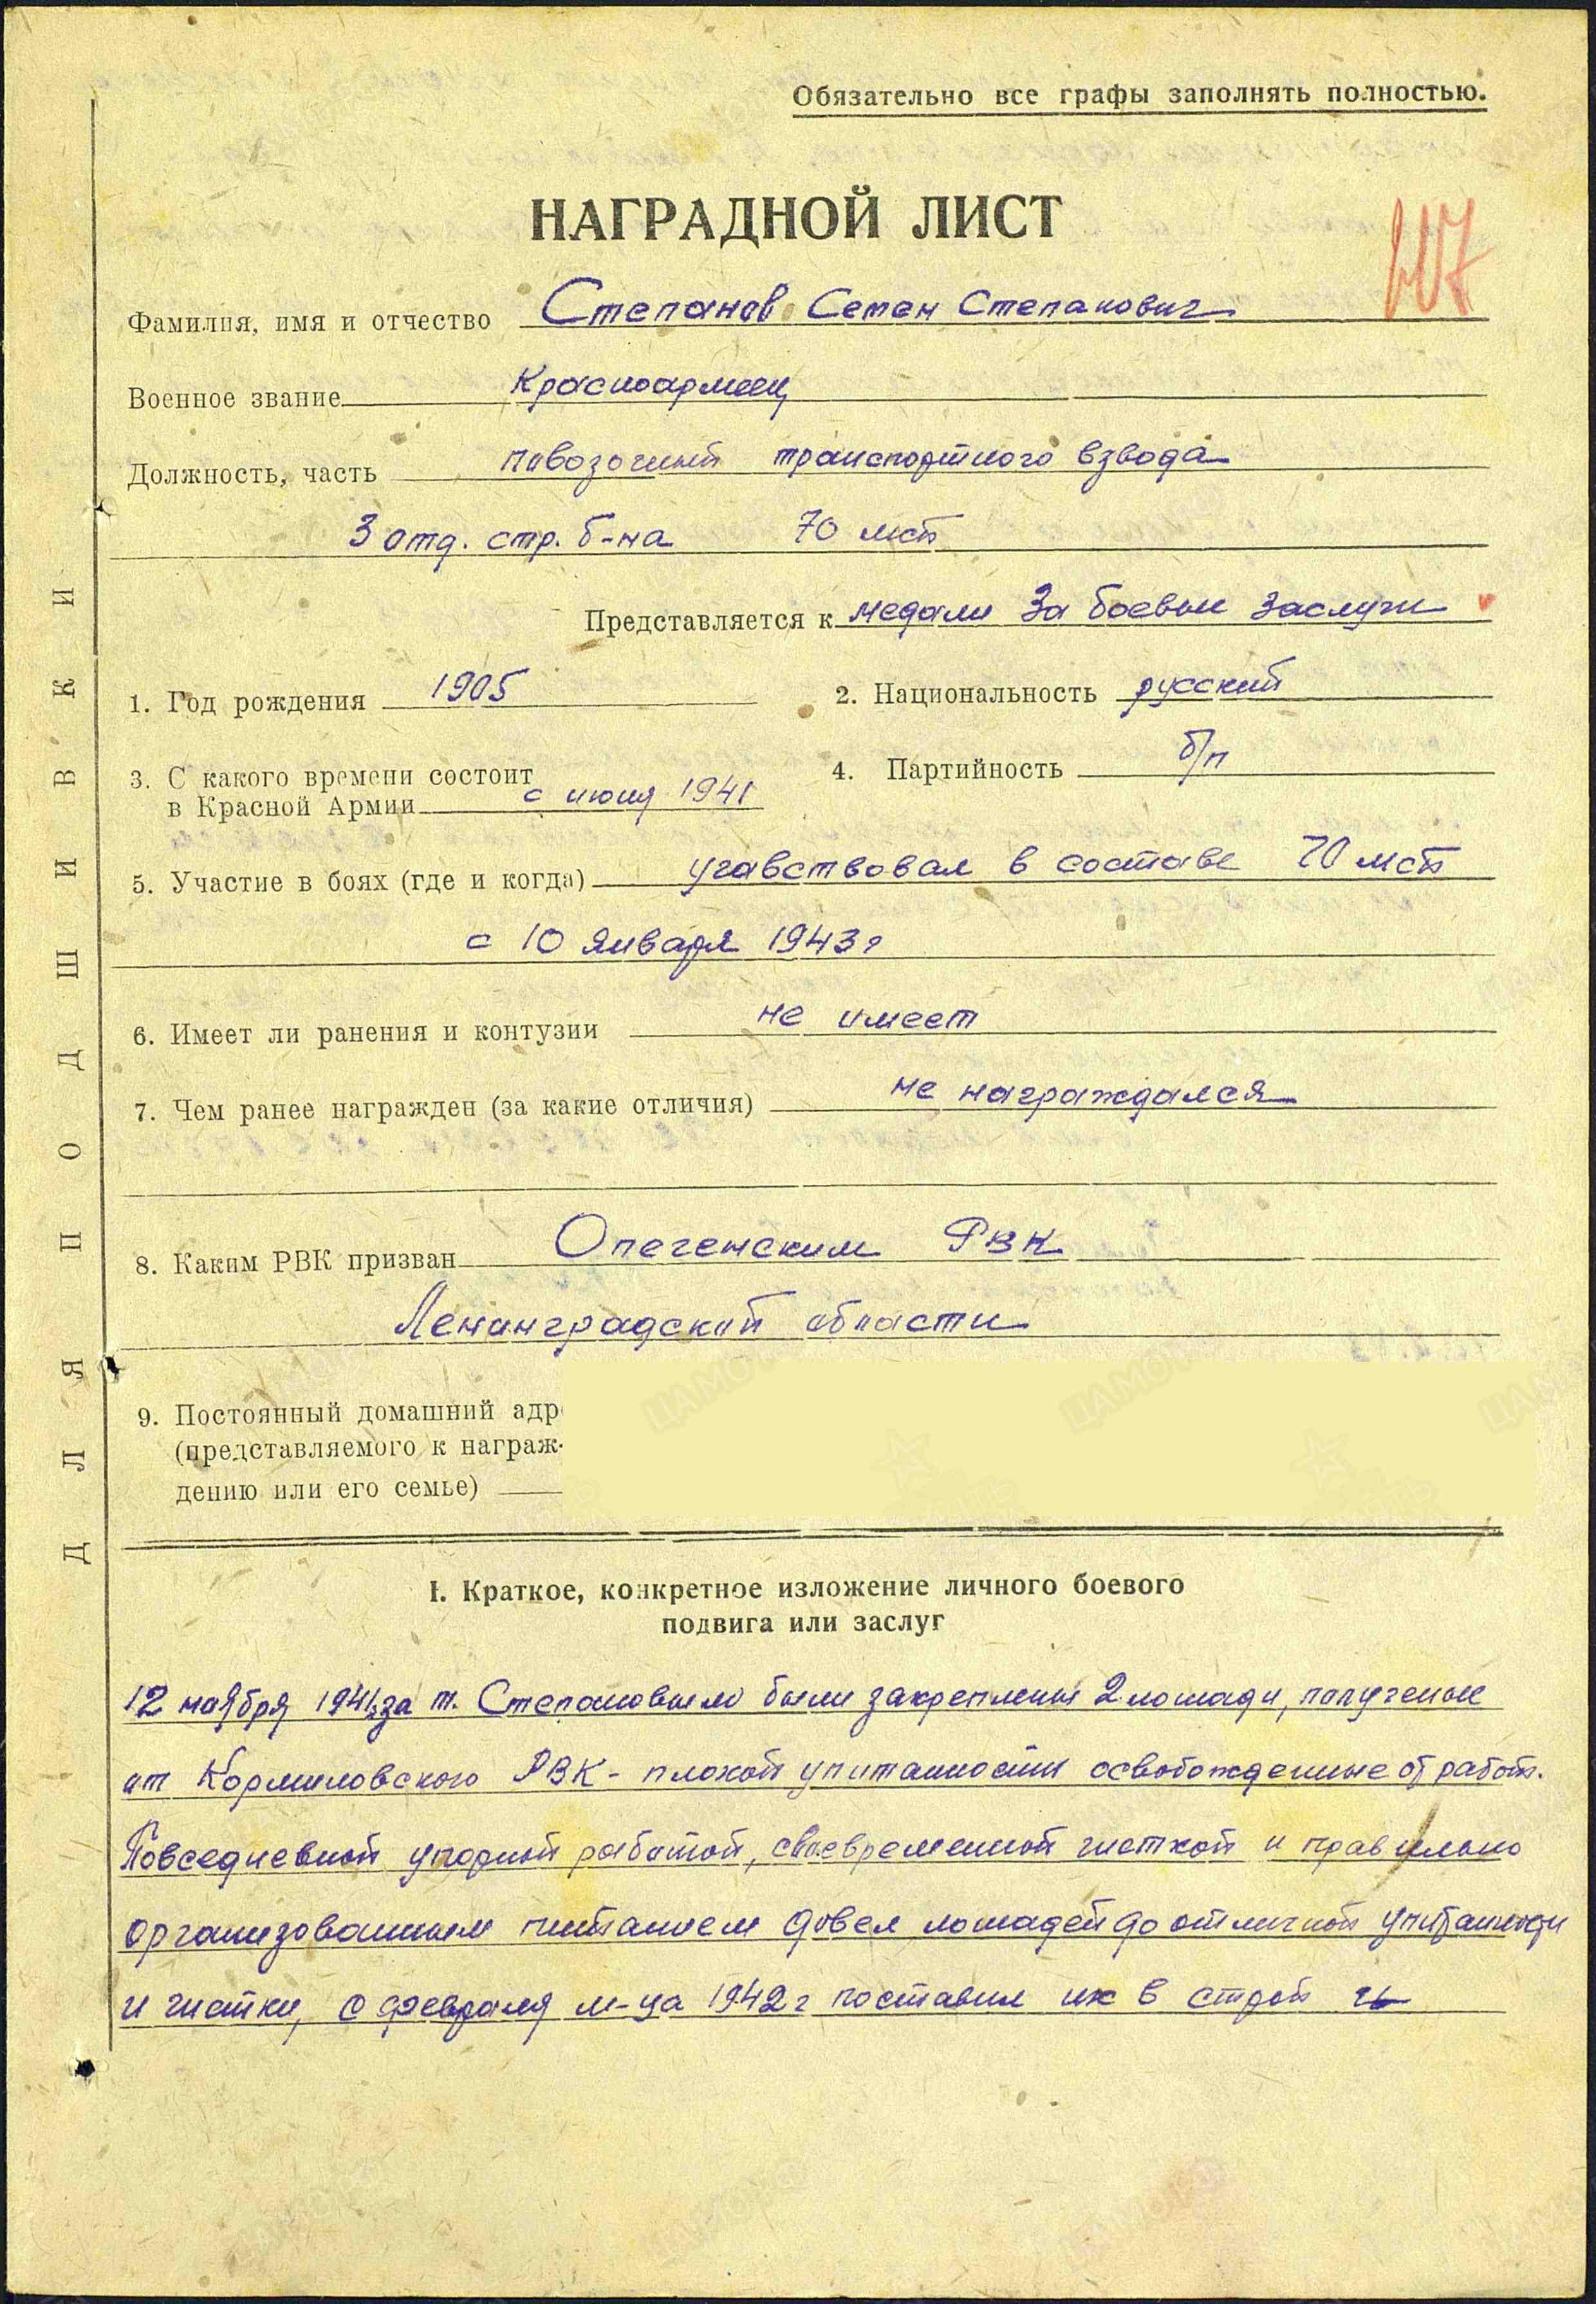 Обязательно все графы заполнять полностью.
НАГРАДНОЙ ЛИСТ
Фамилия, имя и отчество Степанов Семен Степанович
Военное звание Красноармеец
Должность, часть повозочный транспортного взвода
3 отд. стр. б-на 70 мсб
Представляется к медали За боевые заслуги
1. Год рождения 1905
2. Национальность русский
3. С какого времени состоит
в Красной Армии с июня 1941
4. Партийность б/п
5. Участие в боях (где и когда) учавствовал в составе 70 мсб
с 10 января 1943 г
6. Имеет ли ранения и контузии не имеет
7. Чем ранее награжден (за какие отличия) не награждался
8. Каким РВК призван Опеченским РВК
Ленинградской области
9. Постоянный домашний адр
(представляемого к награж-
дению или его семье)
I. Краткое, конкретное изложение личного боевого
подвига или заслуг
12 ноября 1941 за т. Степановым были закреплены 2 лошади, полученые
от Кормиловского РВК - плохой упитанности освобожденные от работ.
Повседневной упорной работой, своевременной чисткой и правильно
организованным питанием довел лошадей до отличной упитанности
и чистки, с февраля м-ца 1942 г поставил их в строй
ДЛЯ ПОДШИВКИ